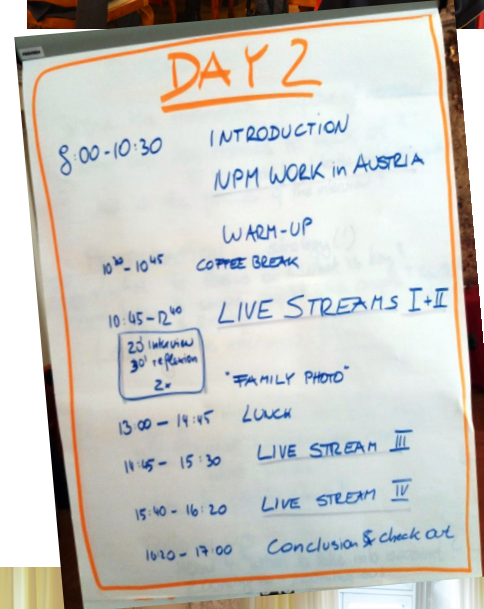 DAY 2
8:00-10:30 INTRODUCTION
NPM WORK in AUSTRIA
WARM-UP
10³⁰-10⁴⁵ COFFEE BREAK
10:45-12⁴⁰ LIVE STREAMS I+II
20' interview
30' reflexion
2x
"FAMILY PHOTO"
13:00 - 14:45 LUNCH
14:45 - 15:30 LIVE STREAM III
15:40 - 16:20 LIVE STREAM IV
16:20 - 17:00 Conclusion & check out